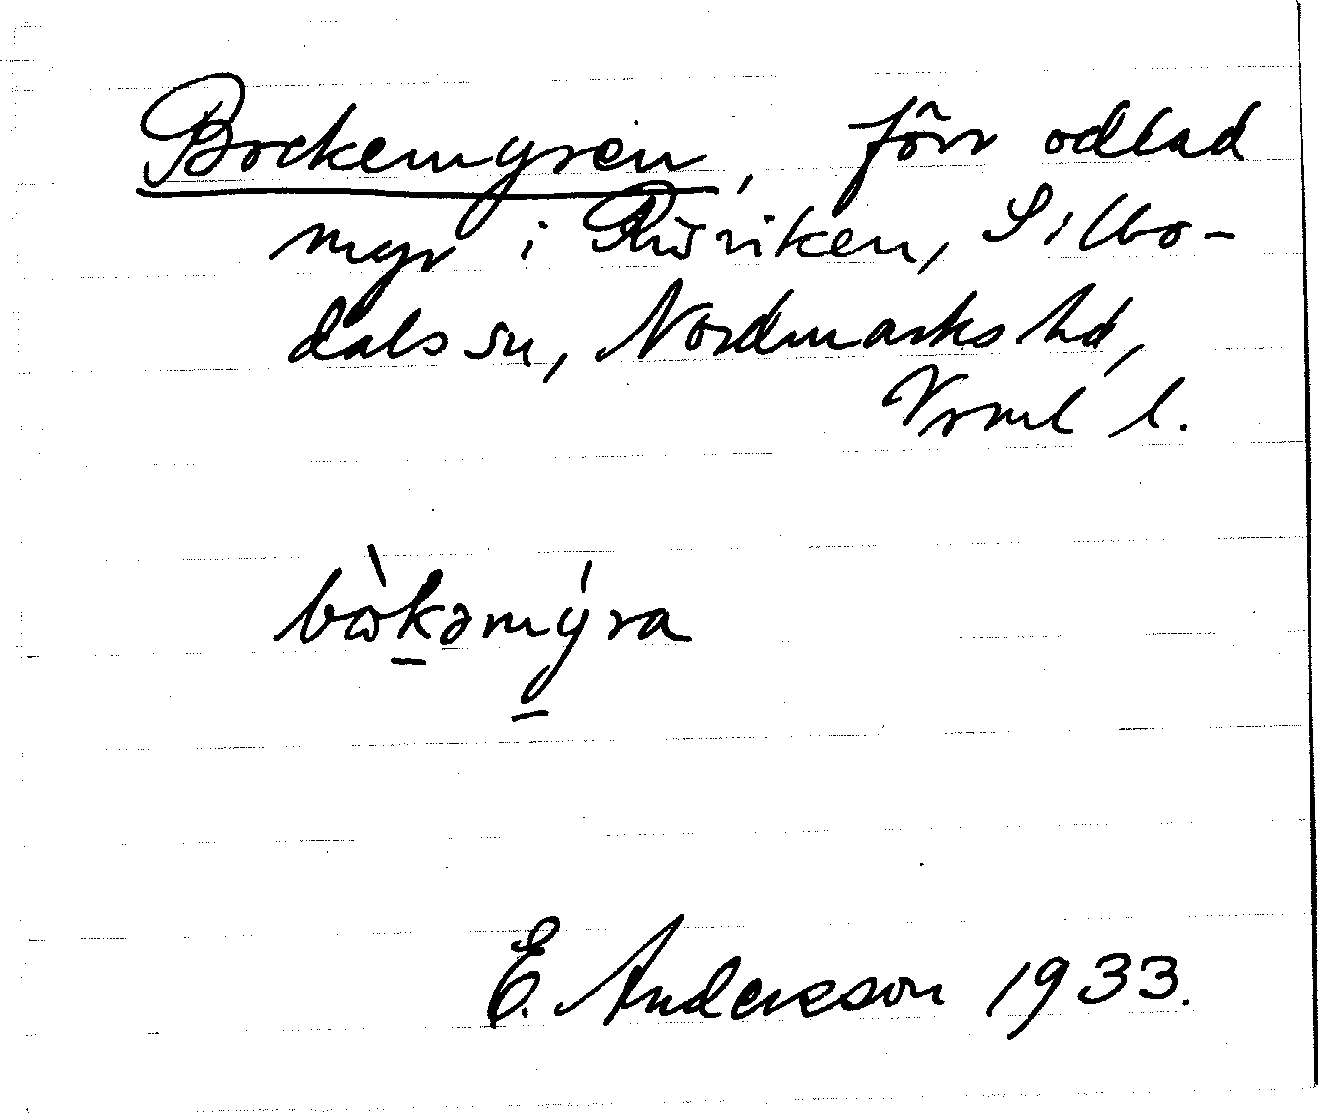 Bockemyren, förr odlad
myr i Risviken, Silbo-
dals sn, Nordmarks hd,
Vrml l.
bòkəmýra
E. Andersson 1933.